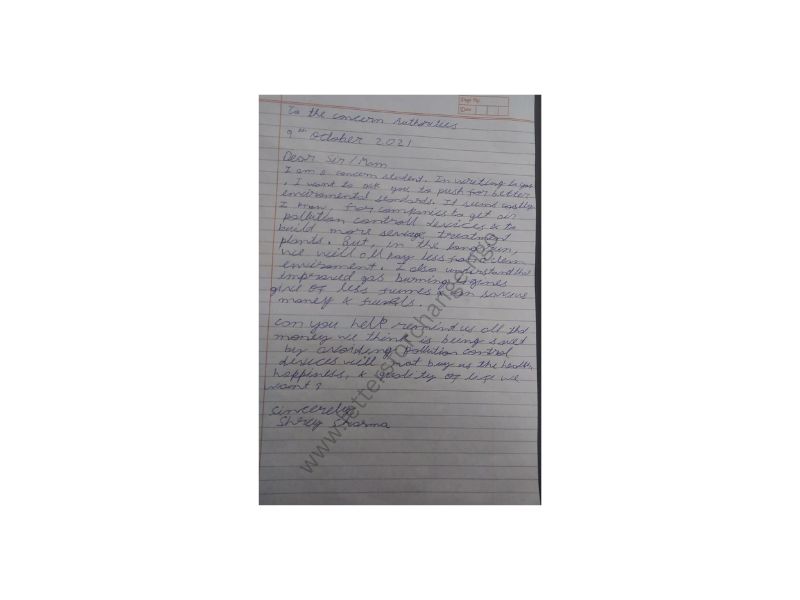 Page No.
Date
To the concern Authorities
9th October 2021
Dear Sir/Mam
I am a concern student. In writing to you
, I want to ask you to push for better
enviromental standards. It sums costly
I know, for companies to get air
pollution controll devices & to
build more sewage treatment
plants. But, in the long run,
we will all pay less for a clean
enviroment. I also understand that
improved gas burning engines
give of less fumes & can
money & fuels.
Can you help remind us all the
money we think is being saved
by avoiding pollution control
devices will not buy us the health,
happiness, & quality of life we
want?
Sincerely
Shrey Sharma
www.lettersforchange